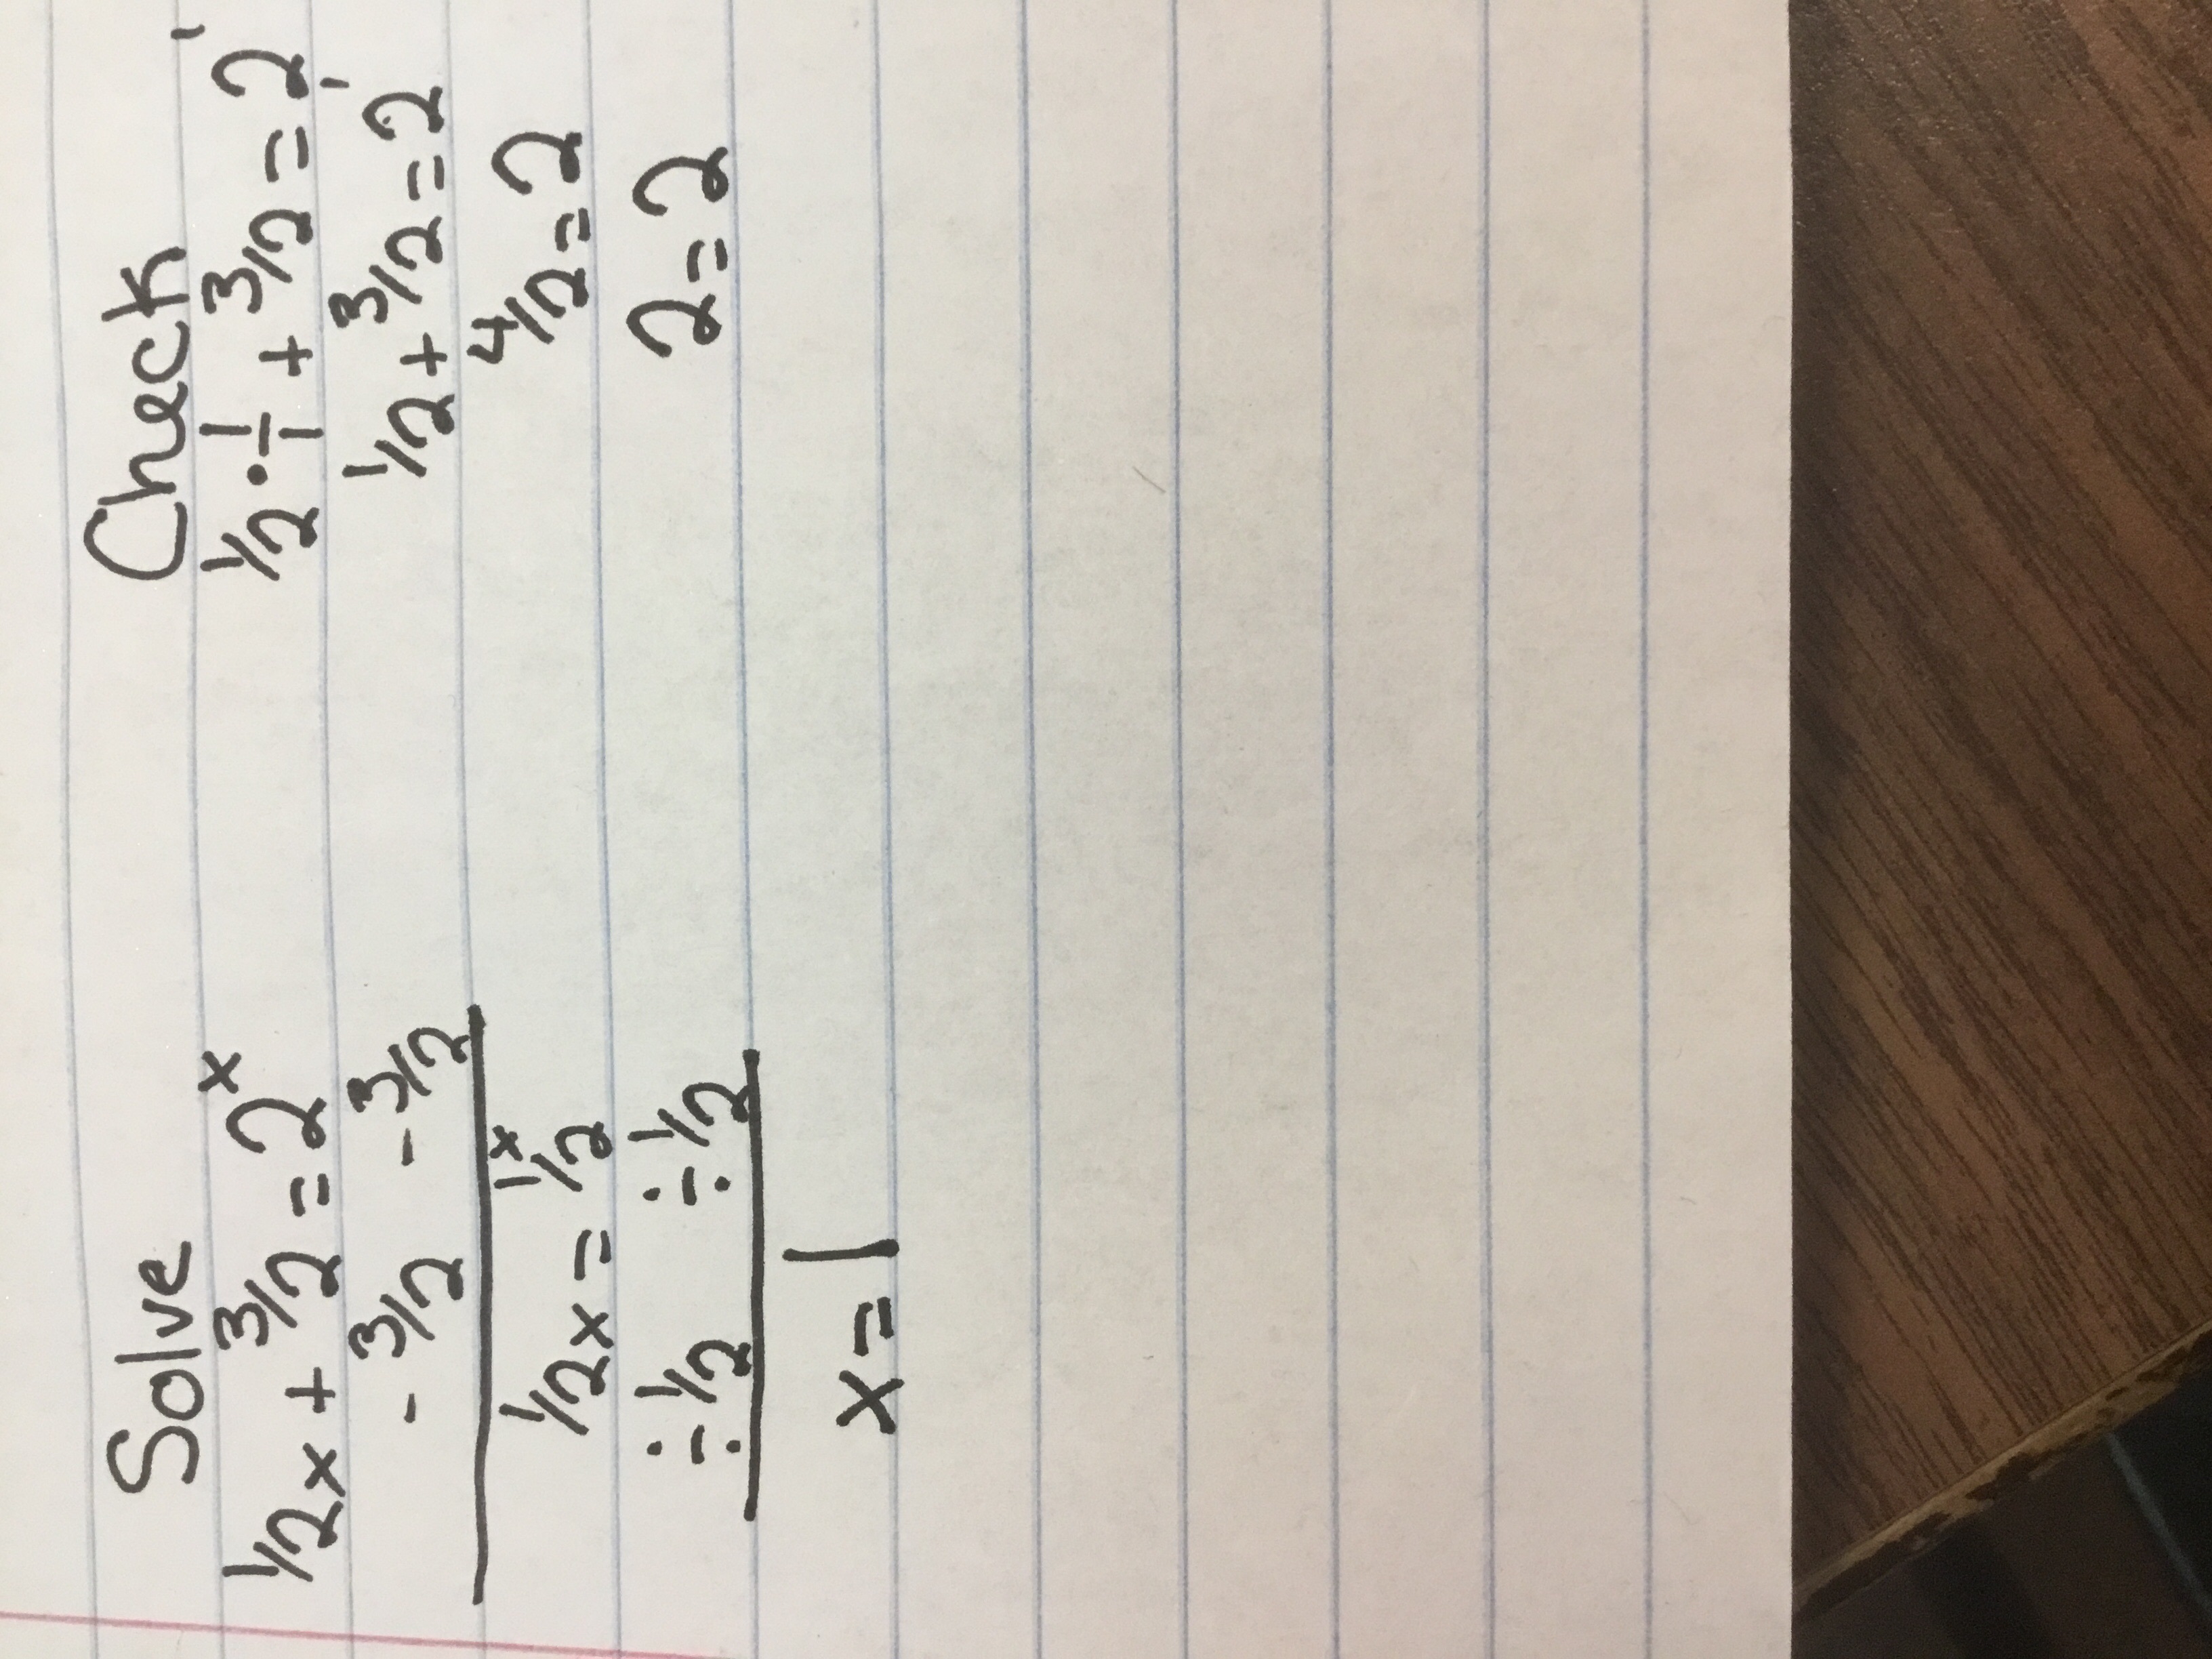 Solve
1/2x + 3/2 = 2^x
- 3/2 - 3/2
1/2x = 1^x/2
÷ 1/2 ÷ 1/2
x = 1
Check
1/2 · 1/1 + 3/2 = 2^1
1/2 + 3/2 = 2^1
4/2 = 2
2 = 2